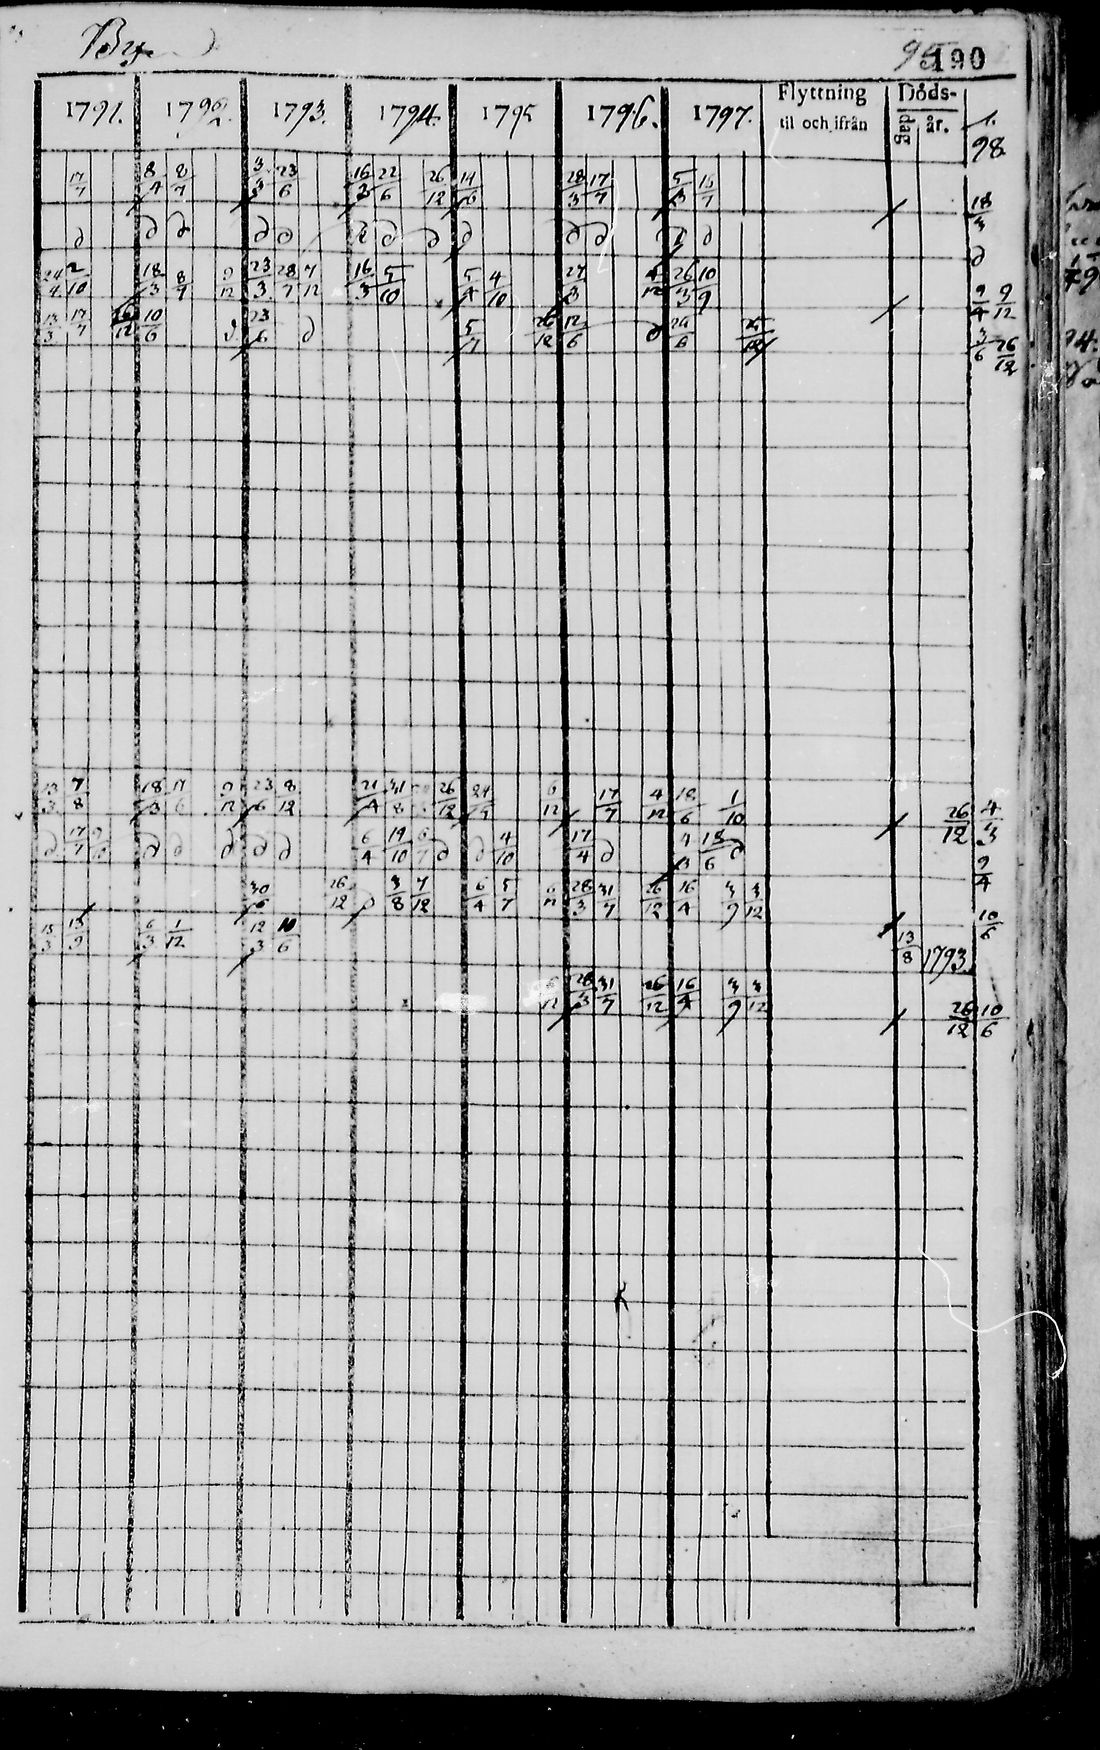 By
95 190
1791. 1792. 1793. 1794. 1795 1796. 1797. Flyttning til och ifrån Döds- dag år. 98
17/7 8/4 8/7 3/3 23/6 16/3 22/6 26/12 14/6 28/3 17/7 5/3 16/7 18/3
d d d d d d d d d d d d
24/4 2/10 18/3 8/7 9/12 23/3 28/7 7/12 16/3 5/10 5/4 4/10 27/3 4/12 26/3 10/9 9/4 9/12
13/3 17/7 10/6 d 23/6 d 5/7 26/12 12/6 d 24/6 26/12 3/6 26/12
13/3 7/8 18/3 9/12 23/6 8/12 21/4 31/8 26/12 24/4 6/12 17/7 4/12 18/6 1/10 26/12 4/3
d 17/7 d d d d d 6/4 19/10 d d 4/10 17/4 d 18/6 d 9/4
30/6 26/12 3/8 7/12 6/4 5/7 6/12 28/3 31/7 26/12 16/4 3/9 3/12 10/6
13/3 13/9 6/3 1/12 12/3 10/6 13/8 1793.
6/12 28/3 31/7 26/12 16/4 3/9 3/12 26/12 10/6